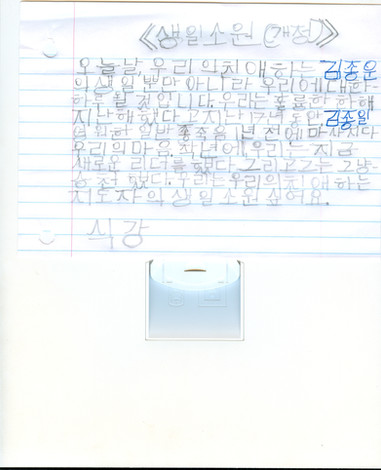 《생일소원 (개정)》
오늘날 우리의친애하는 김종운
의생일뿐만 아니라 우리에대한
하루될것입니다. 우리는훌륭한한해
지난해했다고지난17년동안, 김종일
우리의마음. 작년에우리는지금
새로운리더를했다. 그리고그는그냥
했다. 우리는우리의친애하는
지도자의생일소원싶어요.
식강